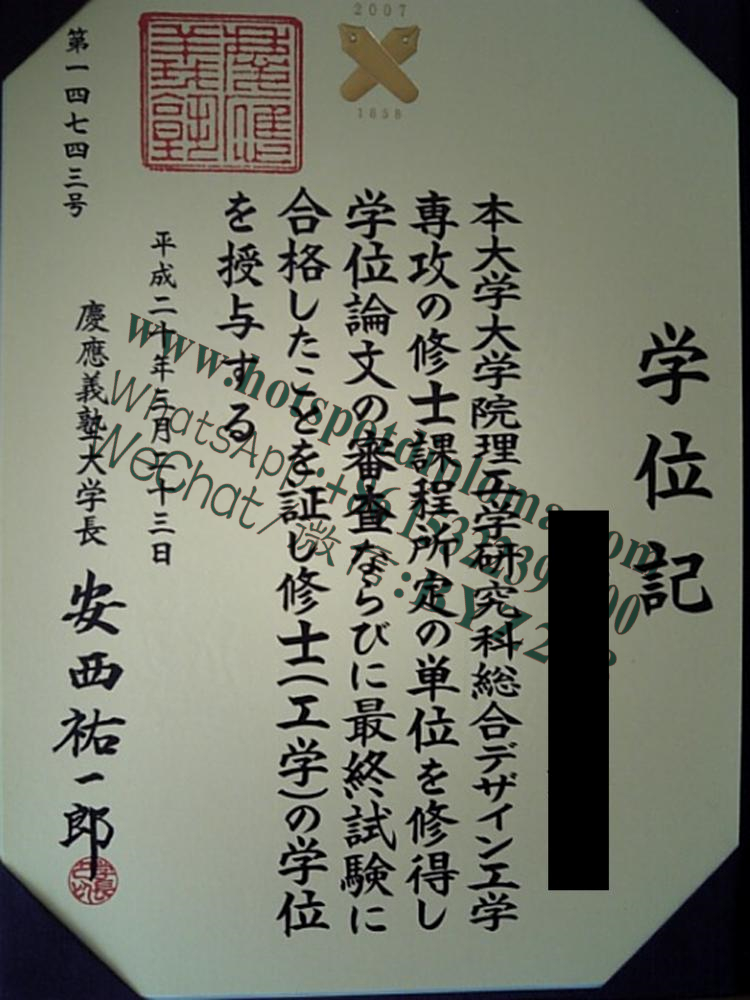 学位記
本大学大学院理工学研究科総合デザイン工学
専攻の修士課程所定の単位を修得し
学位論文の審査ならびに最終試験に
合格したことを証し修士(工学)の学位
を授与する
平成二十年三月二十三日
慶應義塾大学長 安西祐一郎
第一四七四三号
2007
1858
慶應義塾
www.hotspotdiploma.com
WhatsApp:+86
WeChat/微信: